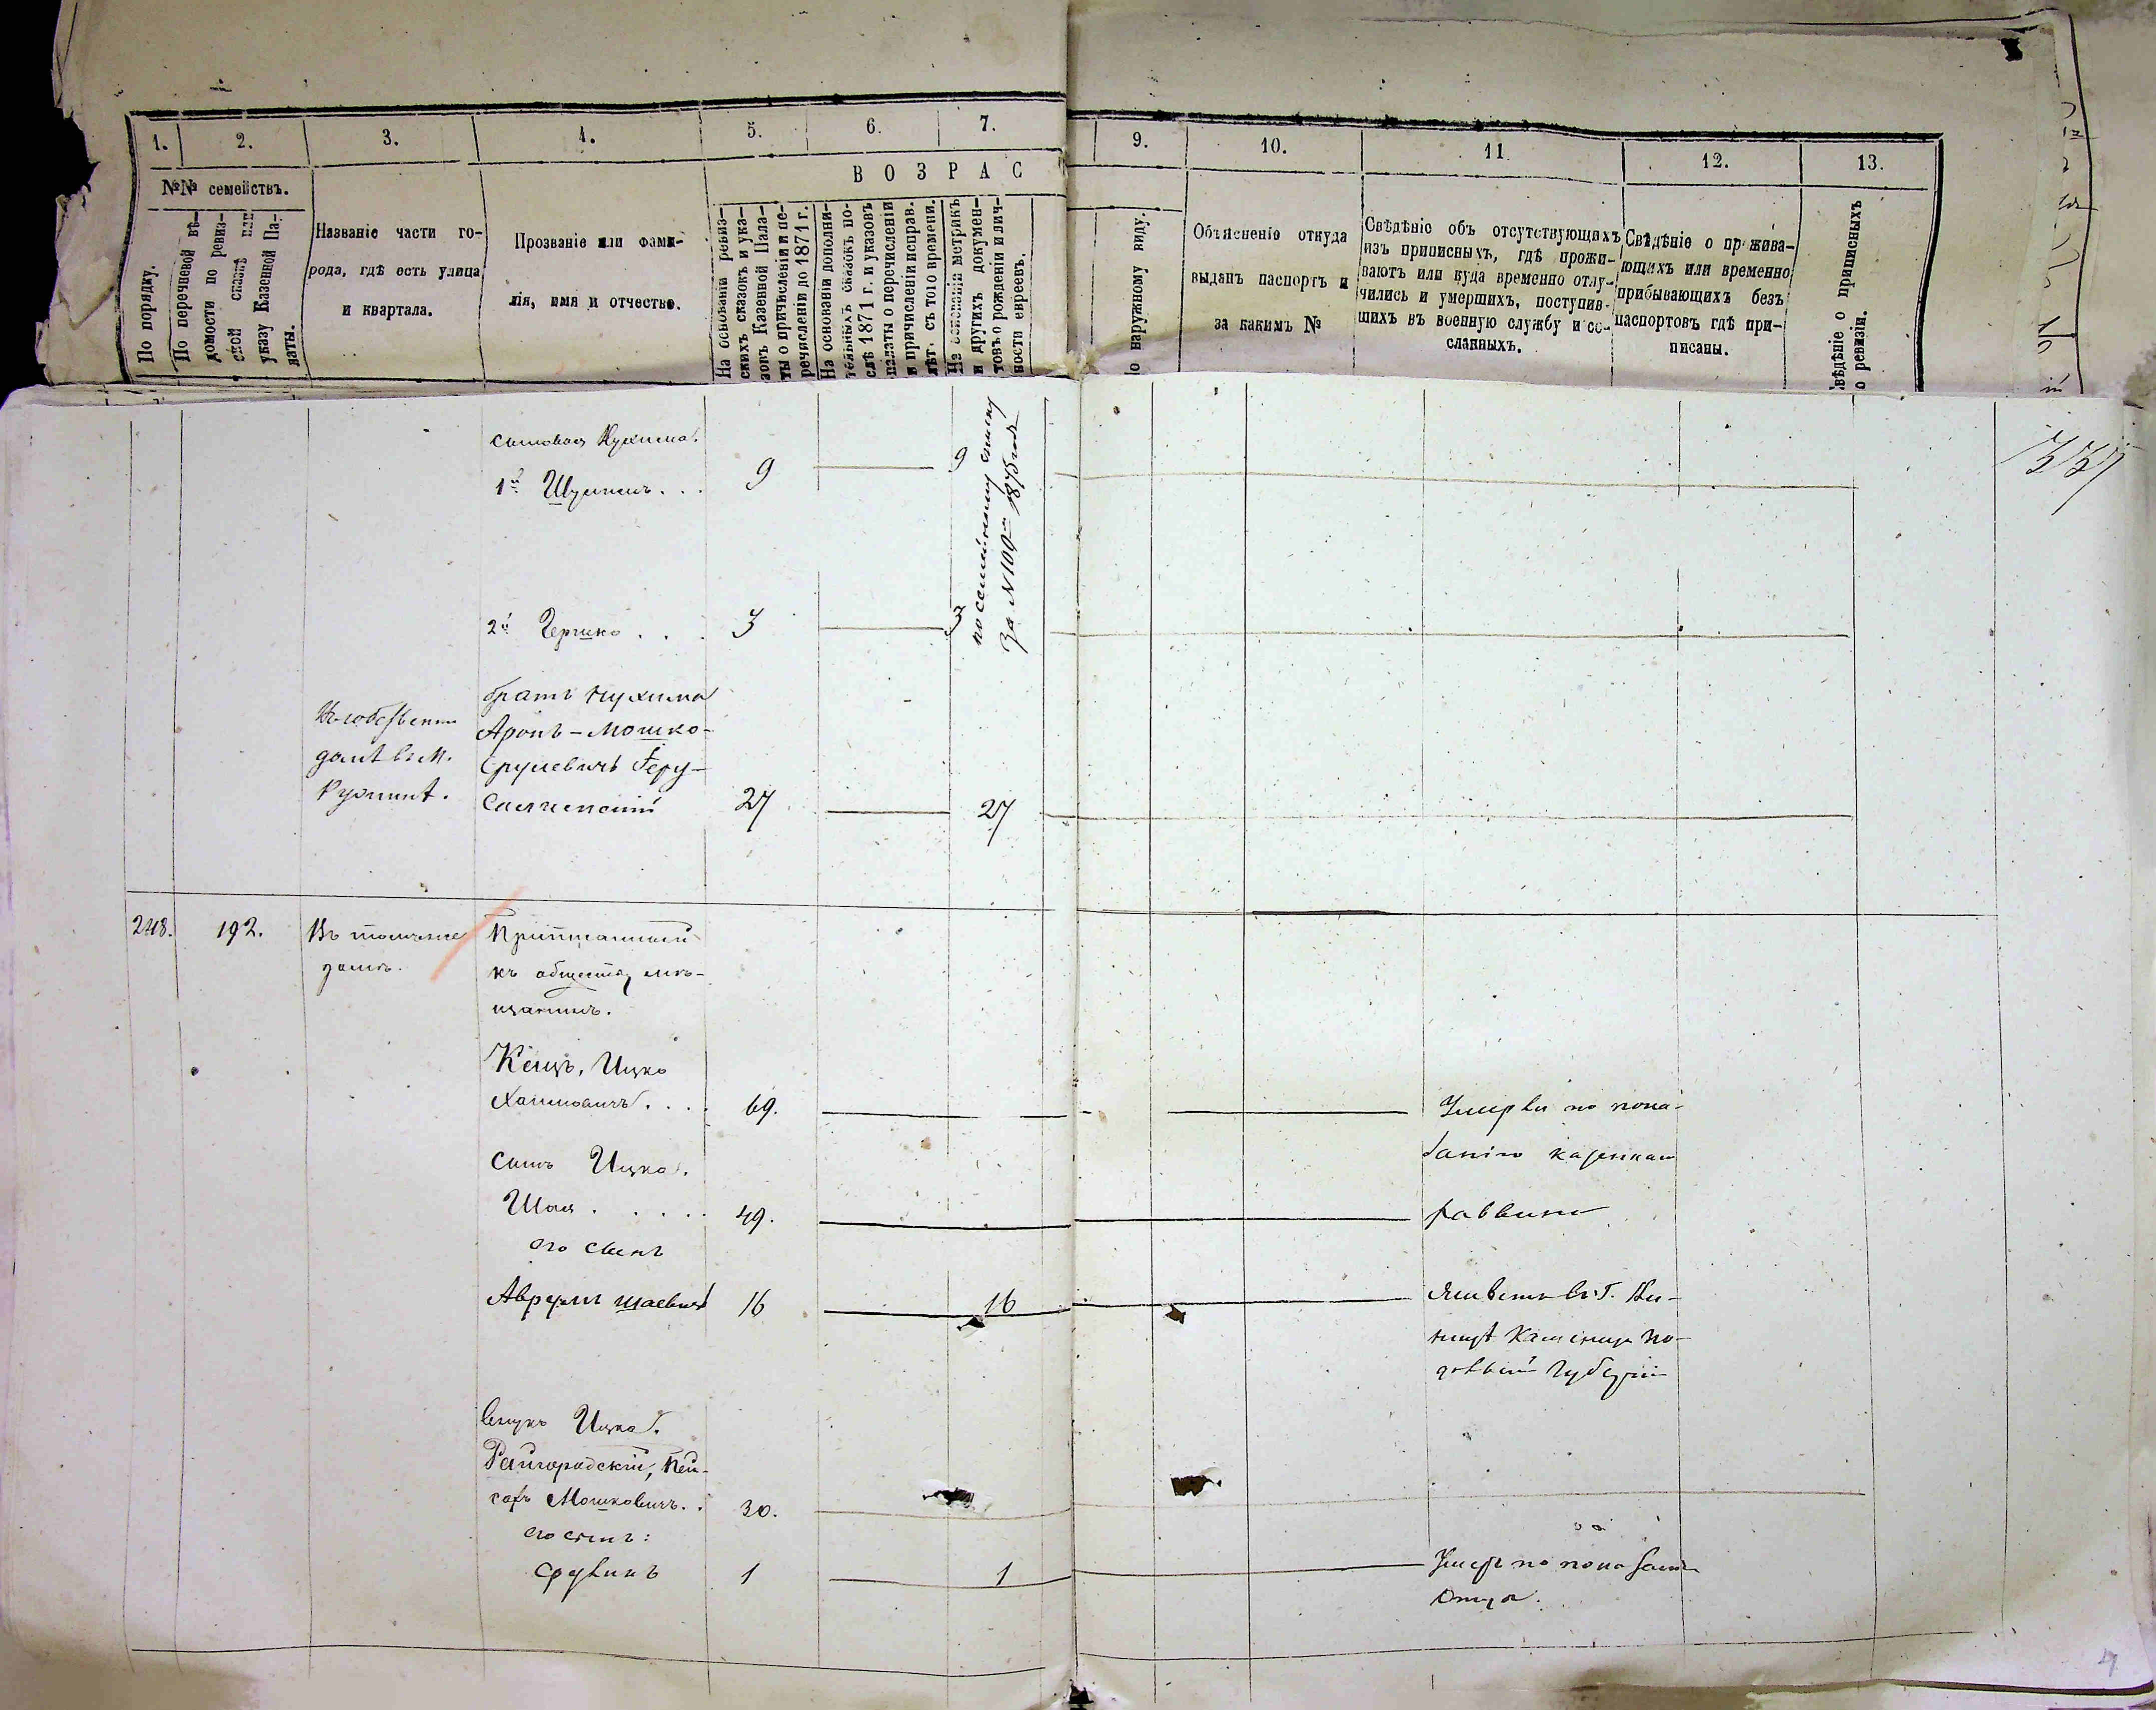 1.
2.
3.
4.
5.
6.
7.
9.
10.
11.
12.
13.
№№ семействъ.
В О З Р А С
По порядку.
По перечневой вѣ-
домости по ревиз-
ской сказкѣ или
указу Казенной Па-
латы.
Названіе части го-
рода, гдѣ есть улица
и квартала.
Прозваніе или фами-
лія, имя и отчество.
На основаніи ревиз-
скихъ сказокъ и ука-
зовъ Казенной Пала-
ты о причисленіи и пе-
речисленіи до 1871 г.
На основаніи дополни-
тельныхъ сказокъ по-
слѣ 1871 г. и указовъ
палаты о перечисленіи
и причисленіи исправ.
лѣт. съ того времени.
На основаніи метрикъ
и другихъ докумен-
товъ о рожденіи и лич-
ности евреевъ.
о наружному виду.
Объясненіе откуда
выданъ паспортъ и
за какимъ №
Свѣдѣніе объ отсутствующихъ
изъ приписныхъ, гдѣ прожи-
ваютъ или куда временно отлу-
чились и умершихъ, поступив-
шихъ въ военную службу и со-
сланныхъ.
Свѣдѣніе о прожива-
ющихъ или временно
прибывающихъ безъ
паспортовъ гдѣ при-
писаны.
Свѣдѣніе о приписныхъ
о ревизіи.
337
сыновья Нухима.
1й Шулимъ . . . 9 9
по семейному списку
за № 109м 1875 года
2й Гершко . . . 3 3
братъ Нухима
Аронъ-Мошко-
Срулевичъ Іеру-
салимскій 27 27
Въ собственн
домѣ въ м.
Ружинѣ.
248. 192.
Въ
домѣ.
Приписанный
къ обществу мѣ-
щанинъ.
Кецъ, Ицко
Хаимовичъ . . . 69.
Умерли по пока-
занію казенная
раввина
сынъ Ицка.
Шая . . . . . 49.
его сынъ
Аврумъ Шаевичъ 16 16
Живетъ въ г. Ви-
ницѣ Каменец По-
дольской губерніи
внукъ Ицка.
Райгородскій, Пей-
сахъ Мошковичъ . . 30.
его сынъ:
Срулинъ 1 1
Умеръ по показанію
Отца.